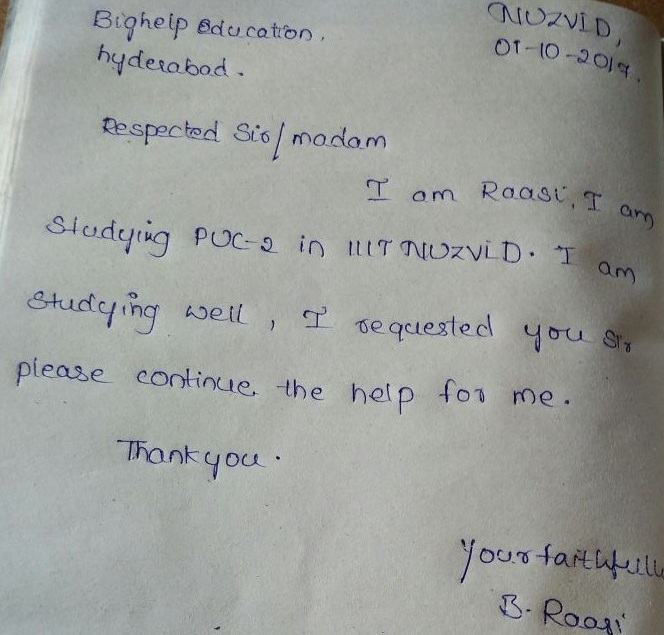 Bighelp Education.
NUZVID,
hyderabad.
01-10-2019.
Respected Sir/madam
I am Raasi, I am
Studying PUC-2 in IIIT NUZViD. I am
Studying well, I requested you Sir
please continue the help for me.
Thank you.
Your faithfully
B. Raasi